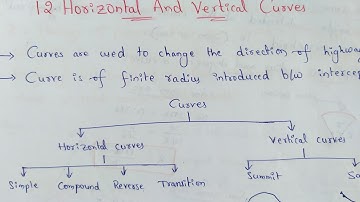 12 Horizontal And Vertical Curves
→ Curves are used to change the direction of highway
→ Curve is of finite radius introduced b/w intercep
Curves
Horizontal curves Vertical curves
Simple Compound Reverse Transition Summit Sa